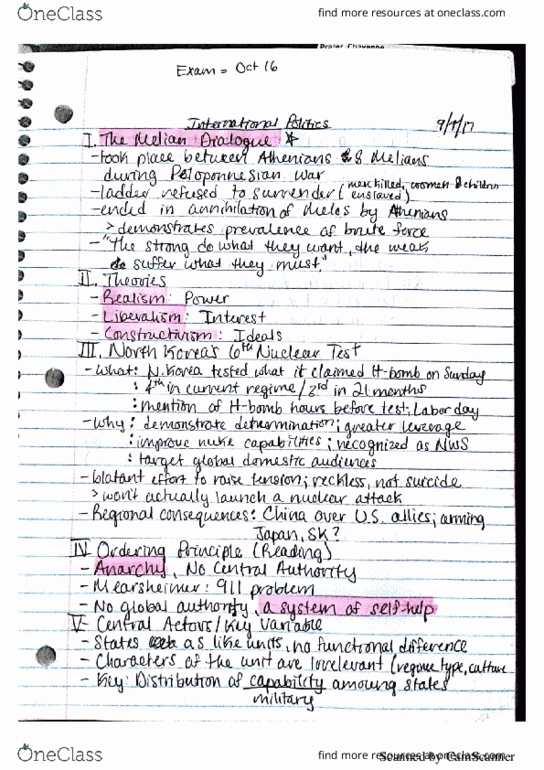 OneClass
find more resources at oneclass.com
Exam = Oct 16
International Politics
I. The Melian Dialogue
- took place between Athenians & 8 Melians
during Peloponnesian War
- ladder refused to surrender (men killed, women & children
enslaved)
- ended in annihilation of Meles by Athenians
> demonstrates prevalence of brute force
- "The strong do what they want, the weak
suffer what they must."
II. Theories
- Realism: Power
- Liberalism: Interest
- Constructivism: Ideals
III. North Korea's 6th Nuclear Test
- What: N.Korea tested what it claimed H-bomb on Sunday
: 4th in current regime / 3rd in 21 months
: mention of H-bomb hours before test; Labor day
- Why: demonstrate determination; greater leverage
: improve nuke capabilities; recognized as NWS
: target global domestic audiences
- blatant effort to raise tension; reckless, not suicide
> won't actually launch a nuclear attack
- Regional consequences: China over U.S. allies; arming
Japan, SK?
IV Ordering Principle (Reading)
- Anarchy, No Central Authority
- Mearsheimer: 911 problem
- No global authority, a system of self-help
V Central Actors/Key Variable
- States as like units, no functional difference
- Characters of the unit are irrelevant (regime type, culture
- Key: Distribution of capability amoung states
military
OneClass
find more resources at oneclass.com
Scanned by CamScanner